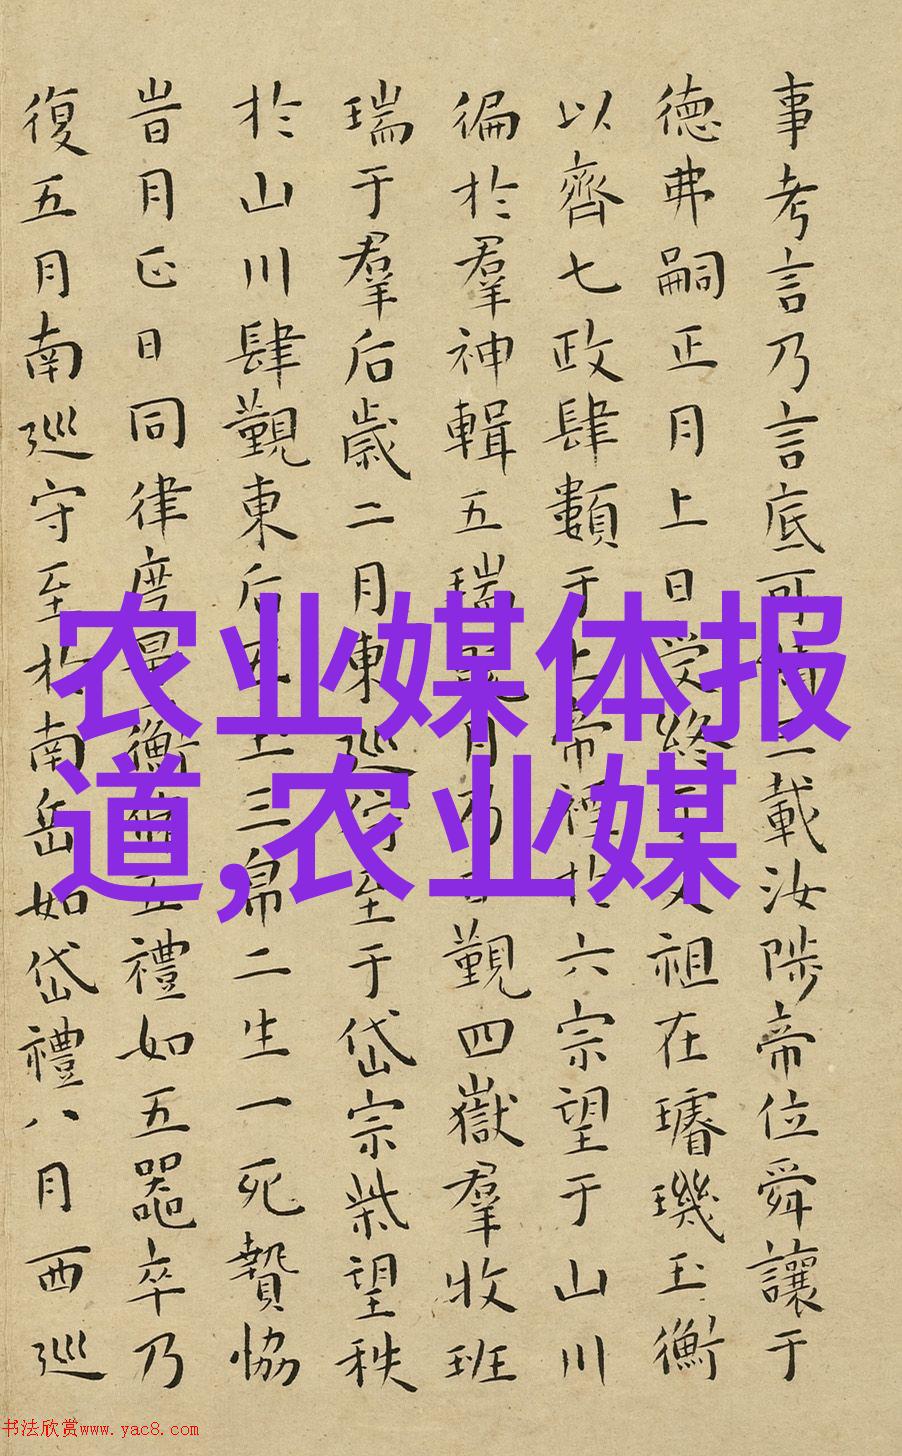 事考言乃言底可績三載汝陟帝位舜讓于
德弗嗣正月上日受終于文祖在璿璣玉衡
以齊七政肆類于上帝禋於六宗望于山川
徧於羣神輯五瑞既月乃日覲四嶽羣牧班
瑞于羣后歲二月東巡守至于岱宗柴望秩
於山川肆覲東后五玉三帛二生一死贄協
旹月正日同律度量衡脩五禮如五器卒乃
復五月南巡守至於南岳如岱禮八月西巡
农业媒体报
道,农业媒
书法欣赏www.yac8.com